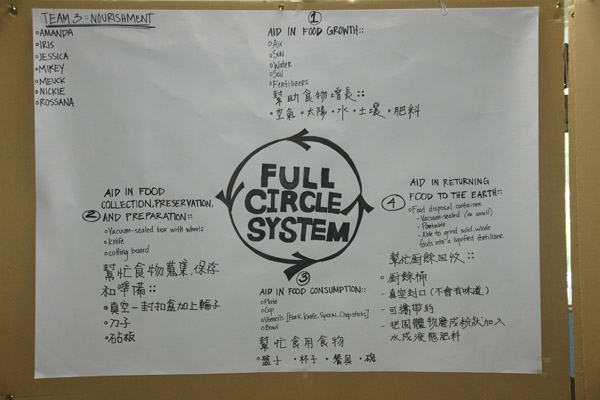 TEAM 3:: NOURISHMENT
AMANDA
IRIS
JESSICA
MIKEY
MEUCK
NICKIE
ROSSANA
1
AID IN FOOD GROWTH::
Air
Sun
Water
Soil
Fertilizers
幫助食物增長::
空氣 • 太陽 • 水 • 土壤 • 肥料
FULL
CIRCLE
SYSTEM
2
AID IN FOOD
COLLECTION, PRESERVATION,
AND PREPARATION::
Vacuum-sealed box with wheels
Knife
cutting board
幫忙食物蒐集、保存
和準備::
真空一封扣盒加上輪子
刀子
砧板
3
AID IN FOOD CONSUMPTION::
Plate
Cup
Utensils [Fork, Knife, Spoon, Chopsticks]
Bowl
幫忙食用食物
盤子 • 杯子 • 餐具 • 碗
4
AID IN RETURNING
FOOD TO THE EARTH::
Food disposal container
- Vacuum-sealed (no smell)
- Portable
- Able to grind solid waste
foods into a liquified fertilizer
幫忙廚餘回收::
廚餘桶
- 真空封口 (不會有味道)
- 可攜帶的
- 把固體物磨成粉狀加入
水成液態肥料